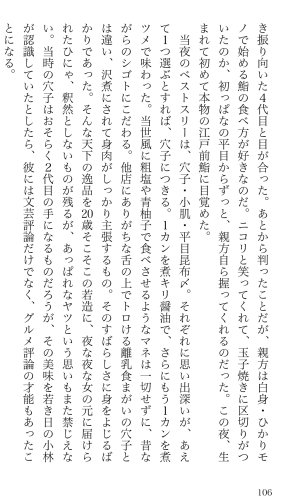 き振り向いた4代目と目が合った。あとから判ったことだが、親方は白身・ひかりモ
ノで始める鮨の食べ方が好きなのだ。ニコリと笑ってくれて、玉子焼きに区切りがつ
いたのか、初っぱなの平目からずっと、親方自ら握ってくれるのだった。この夜、生
まれて初めて本物の江戸前鮨に目覚めた。
当夜のベストスリーは、穴子・小肌・平目昆布〆。それぞれに思い出深いが、あえ
て1つ選ぶとすれば、穴子につきる。1カンを煮キリ醤油で、さらにもう1カンを煮
ツメで味わった。当世風に粗塩や青柚子で食べさせるようなマネは一切せずに、昔な
がらのシゴトにこだわる。他店にありがちな舌の上でトロける離乳食まがいの穴子と
は違い、沢煮にされて身肉がしっかり主張するもの。そのすばらしさに身をよじるば
かりであった。そんな天下の逸品を20歳そこそこの若造に、夜な夜な女の元に届けら
れたひにゃ、釈然としないものが残るが、あっぱれなヤツという思いもまた禁じえな
い。当時の穴子はおそらく2代目の手になるものだろうが、その美味を若き日の小林
が認識していたとしたら、彼には文芸評論だけでなく、グルメ評論の才能もあったこ
とになる。
106